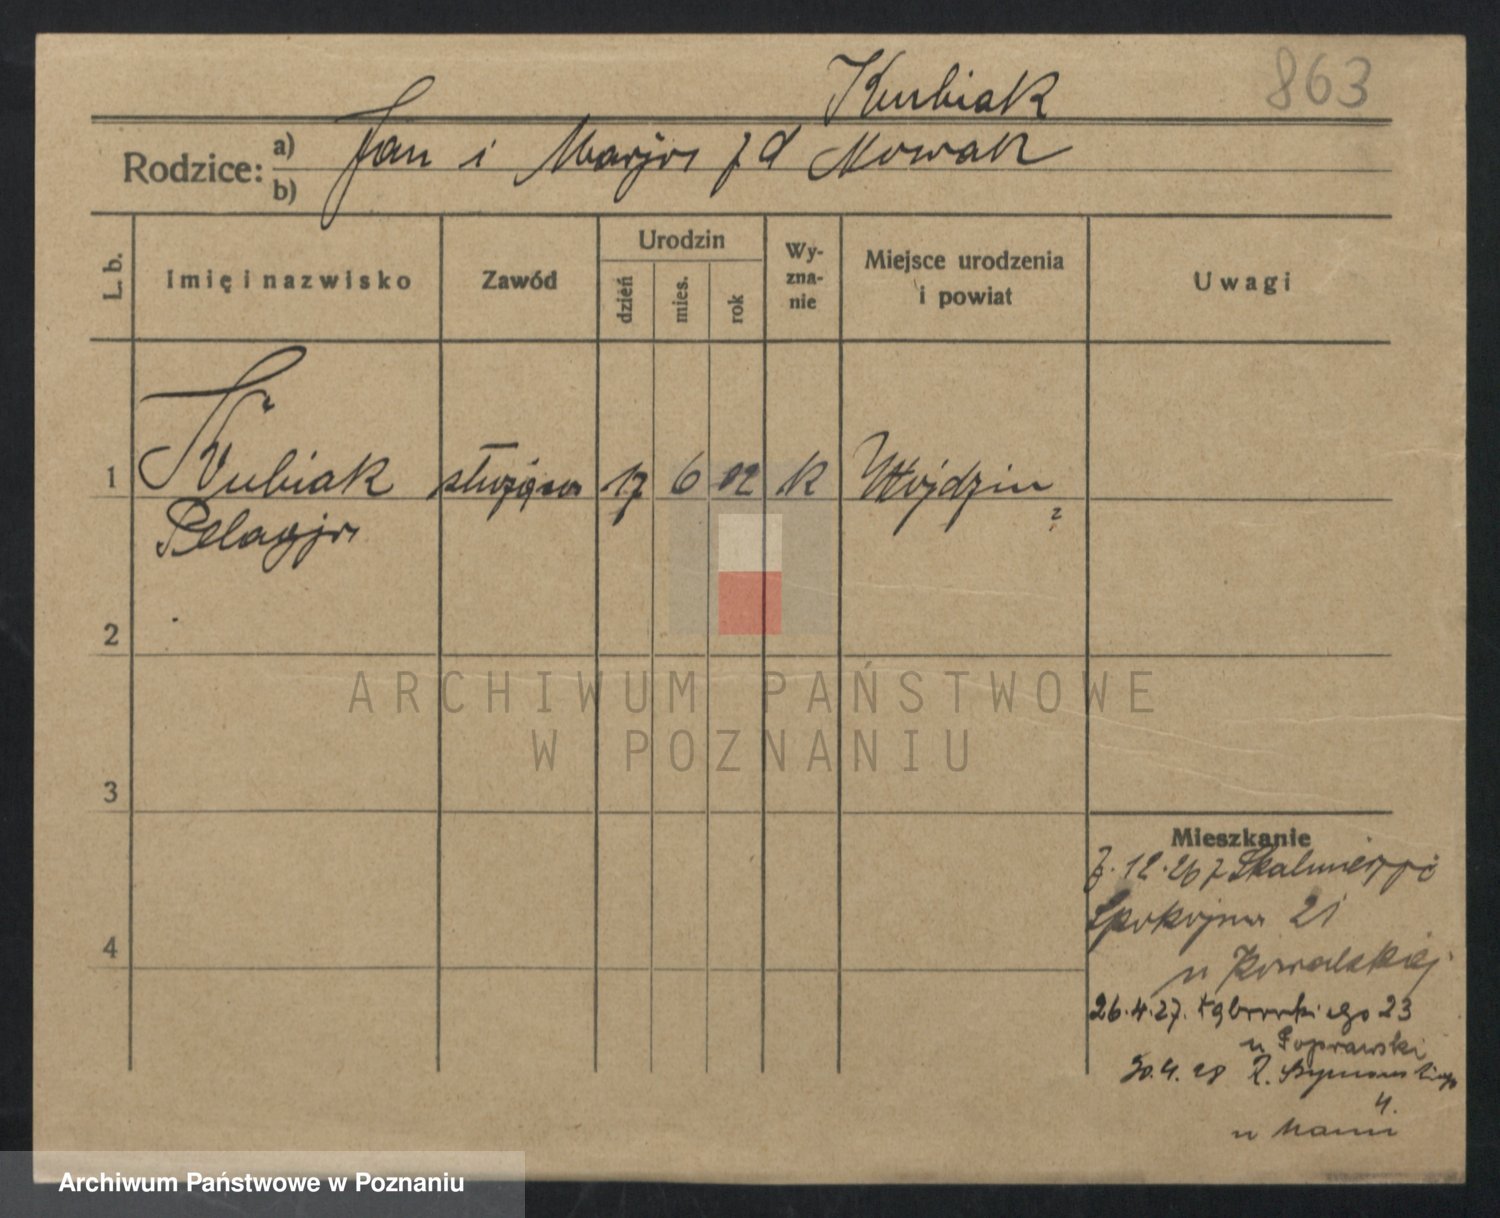 863
Kurbiak
Rodzice: a) b) Jan i Marja z d Nowak
L. b. Imię i nazwisko Zawód Urodzin dzień mies. rok Wy-zna-nie Miejsce urodzenia i powiat Uwagi
1 Kubiak służąca 17 6 02 k
Pelagja ?
2
3
4
Mieszkanie
7.12.26 z
Spokojna 21
u Kowalskiej
26.4.27. 23
u Poprawski
30.4.28
4.
u
ARCHIWUM PAŃSTWOWE
W POZNANIU
Archiwum Państwowe w Poznaniu